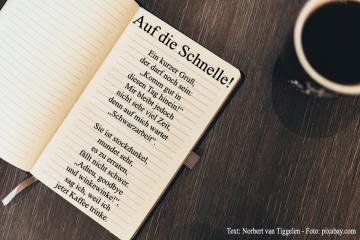 Auf die Schnelle!
Ein kurzer Gruß,
der darf noch sein:
„Komm gut in
diesen Tag hinein!“
Mir bleibt jedoch
nicht sehr viel Zeit,
denn auf mich wartet
„Schwarzarbeit“.
Sie ist stockdunkel,
mundet sehr,
es zu erraten,
fällt nicht schwer.
„Adieu, goodbye
und winkewinke!“,
sag ich, weil ich
jetzt Kaffee trinke.
Text: Norbert van Tiggelen - Foto: pixabay.com